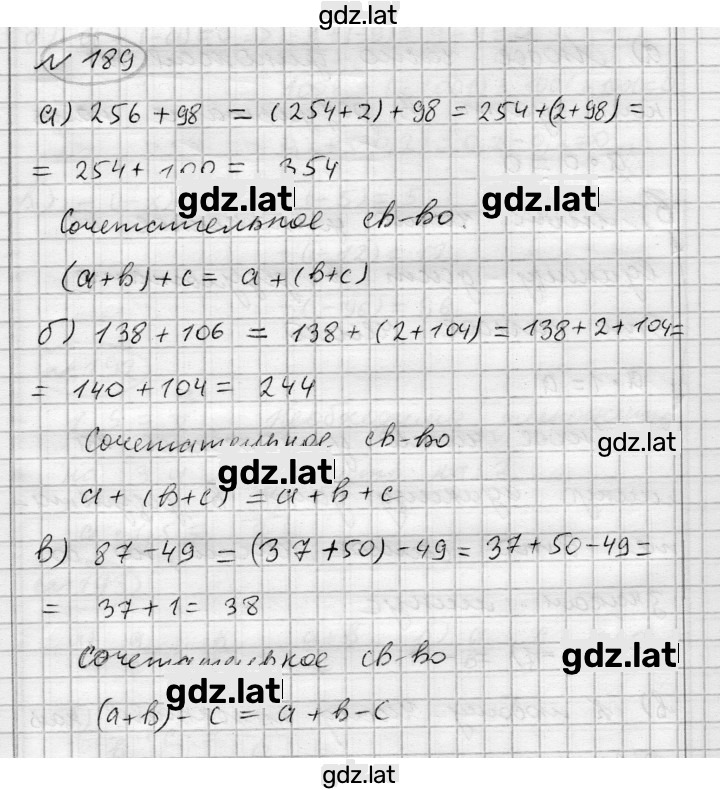 gdz.lat
№ 189
а) 256 + 98 = (254+2) + 98 = 254+(2+98) =
= 254 + 100 = 354
gdz.lat gdz.lat
Сочетательное св-во.
(a+b)+c = a+(b+c)
б) 138 + 106 = 138 + (2+104) = 138+2+104=
= 140 + 104 = 244
Сочетательное св-во gdz.lat
gdz.lat
a + (b+c) = a+b+c
в) 87-49 = (37+50)-49 = 37+50-49=
= 37+1 = 38
Сочетательное св-во gdz.lat
gdz.lat
(a+b)-c = a+b-c
gdz.lat